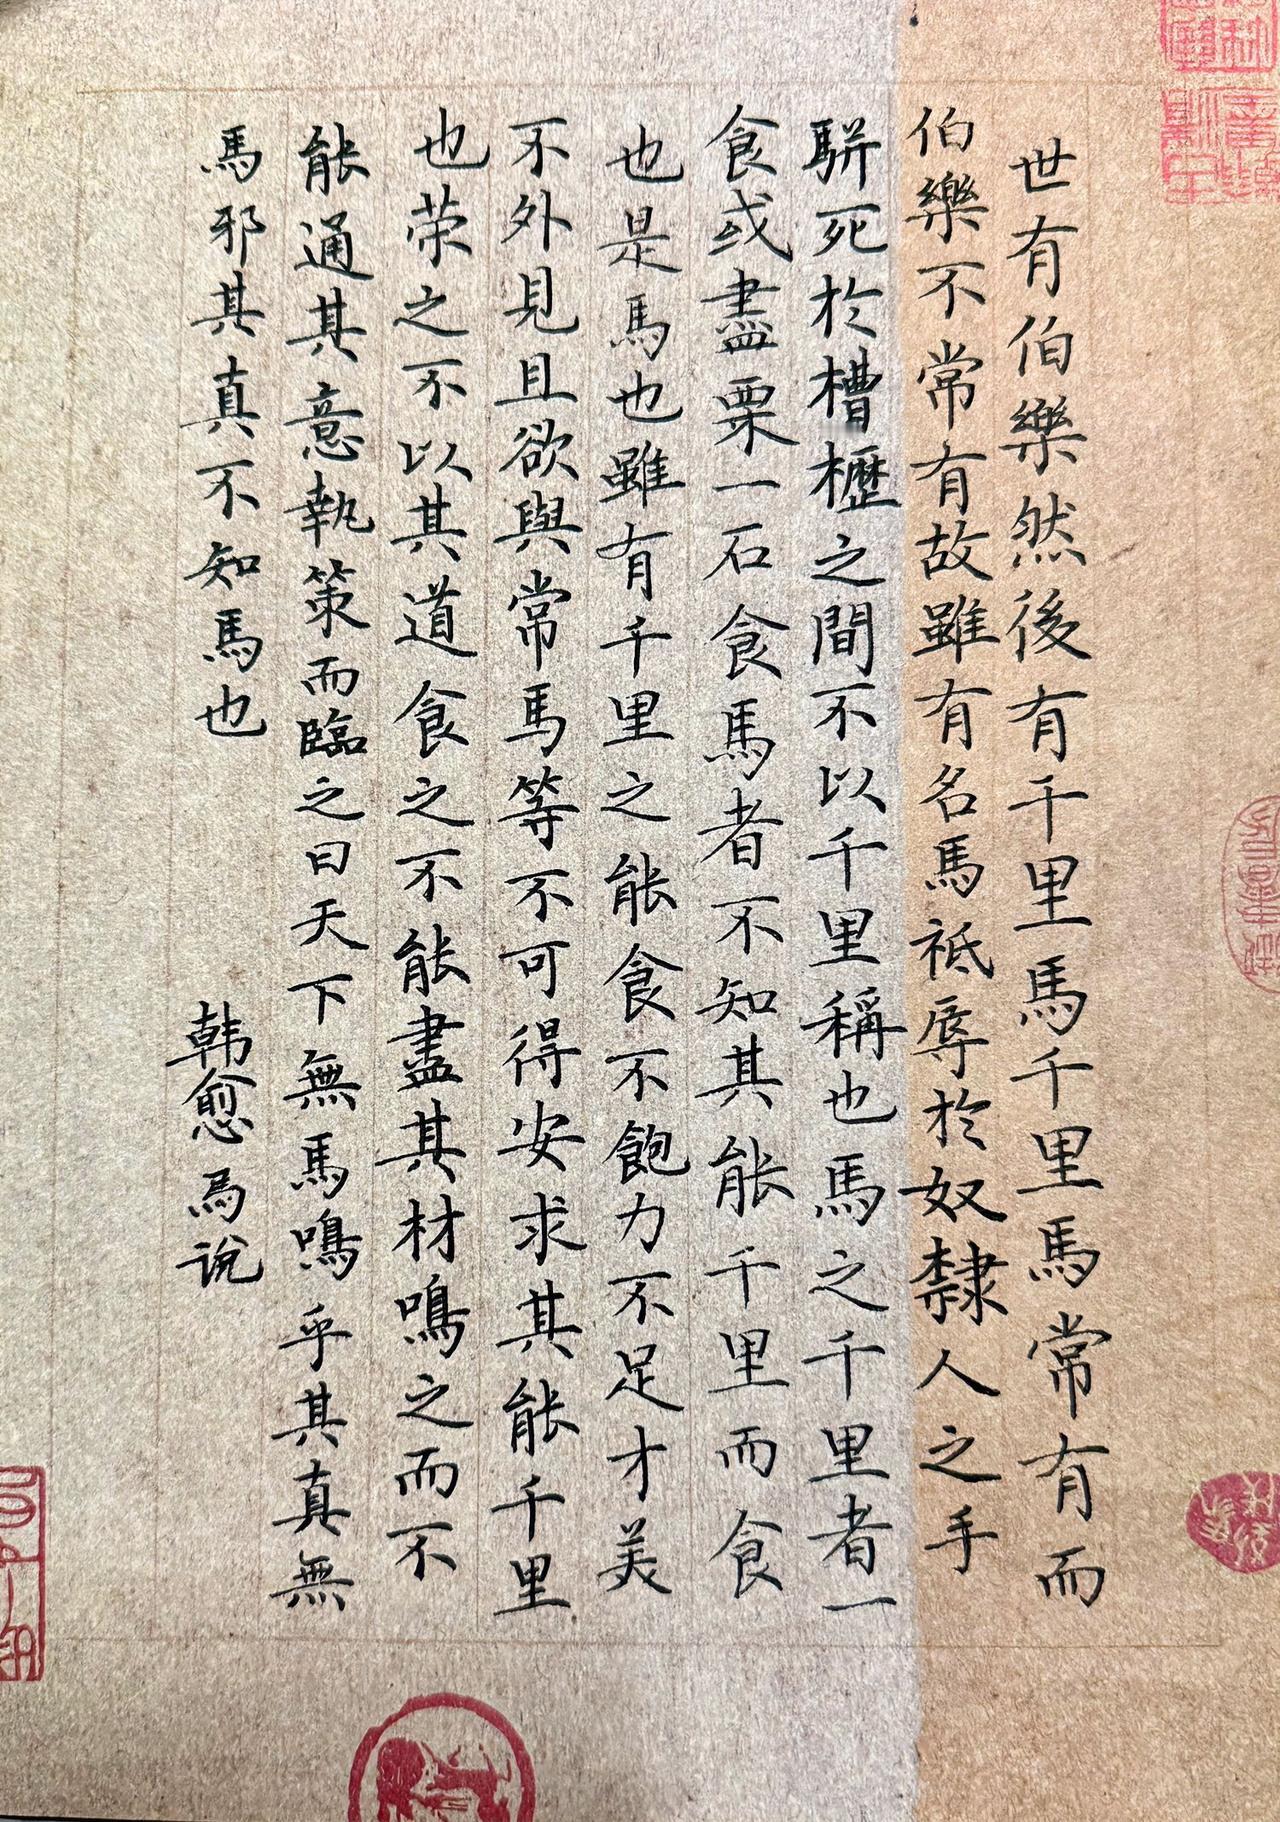 世有伯樂然後有千里馬千里馬常有而
伯樂不常有故雖有名馬祗辱於奴隸人之手
駢死於槽櫪之間不以千里稱也馬之千里者一
食或盡粟一石食馬者不知其能千里而食
也是馬也雖有千里之能食不飽力不足才美
不外見且欲與常馬等不可得安求其能千里
也荣之不以其道食之不能盡其材鳴之而不
能通其意執策而臨之曰天下無馬鳴乎其真無
馬邪其真不知馬也
韩愈马说